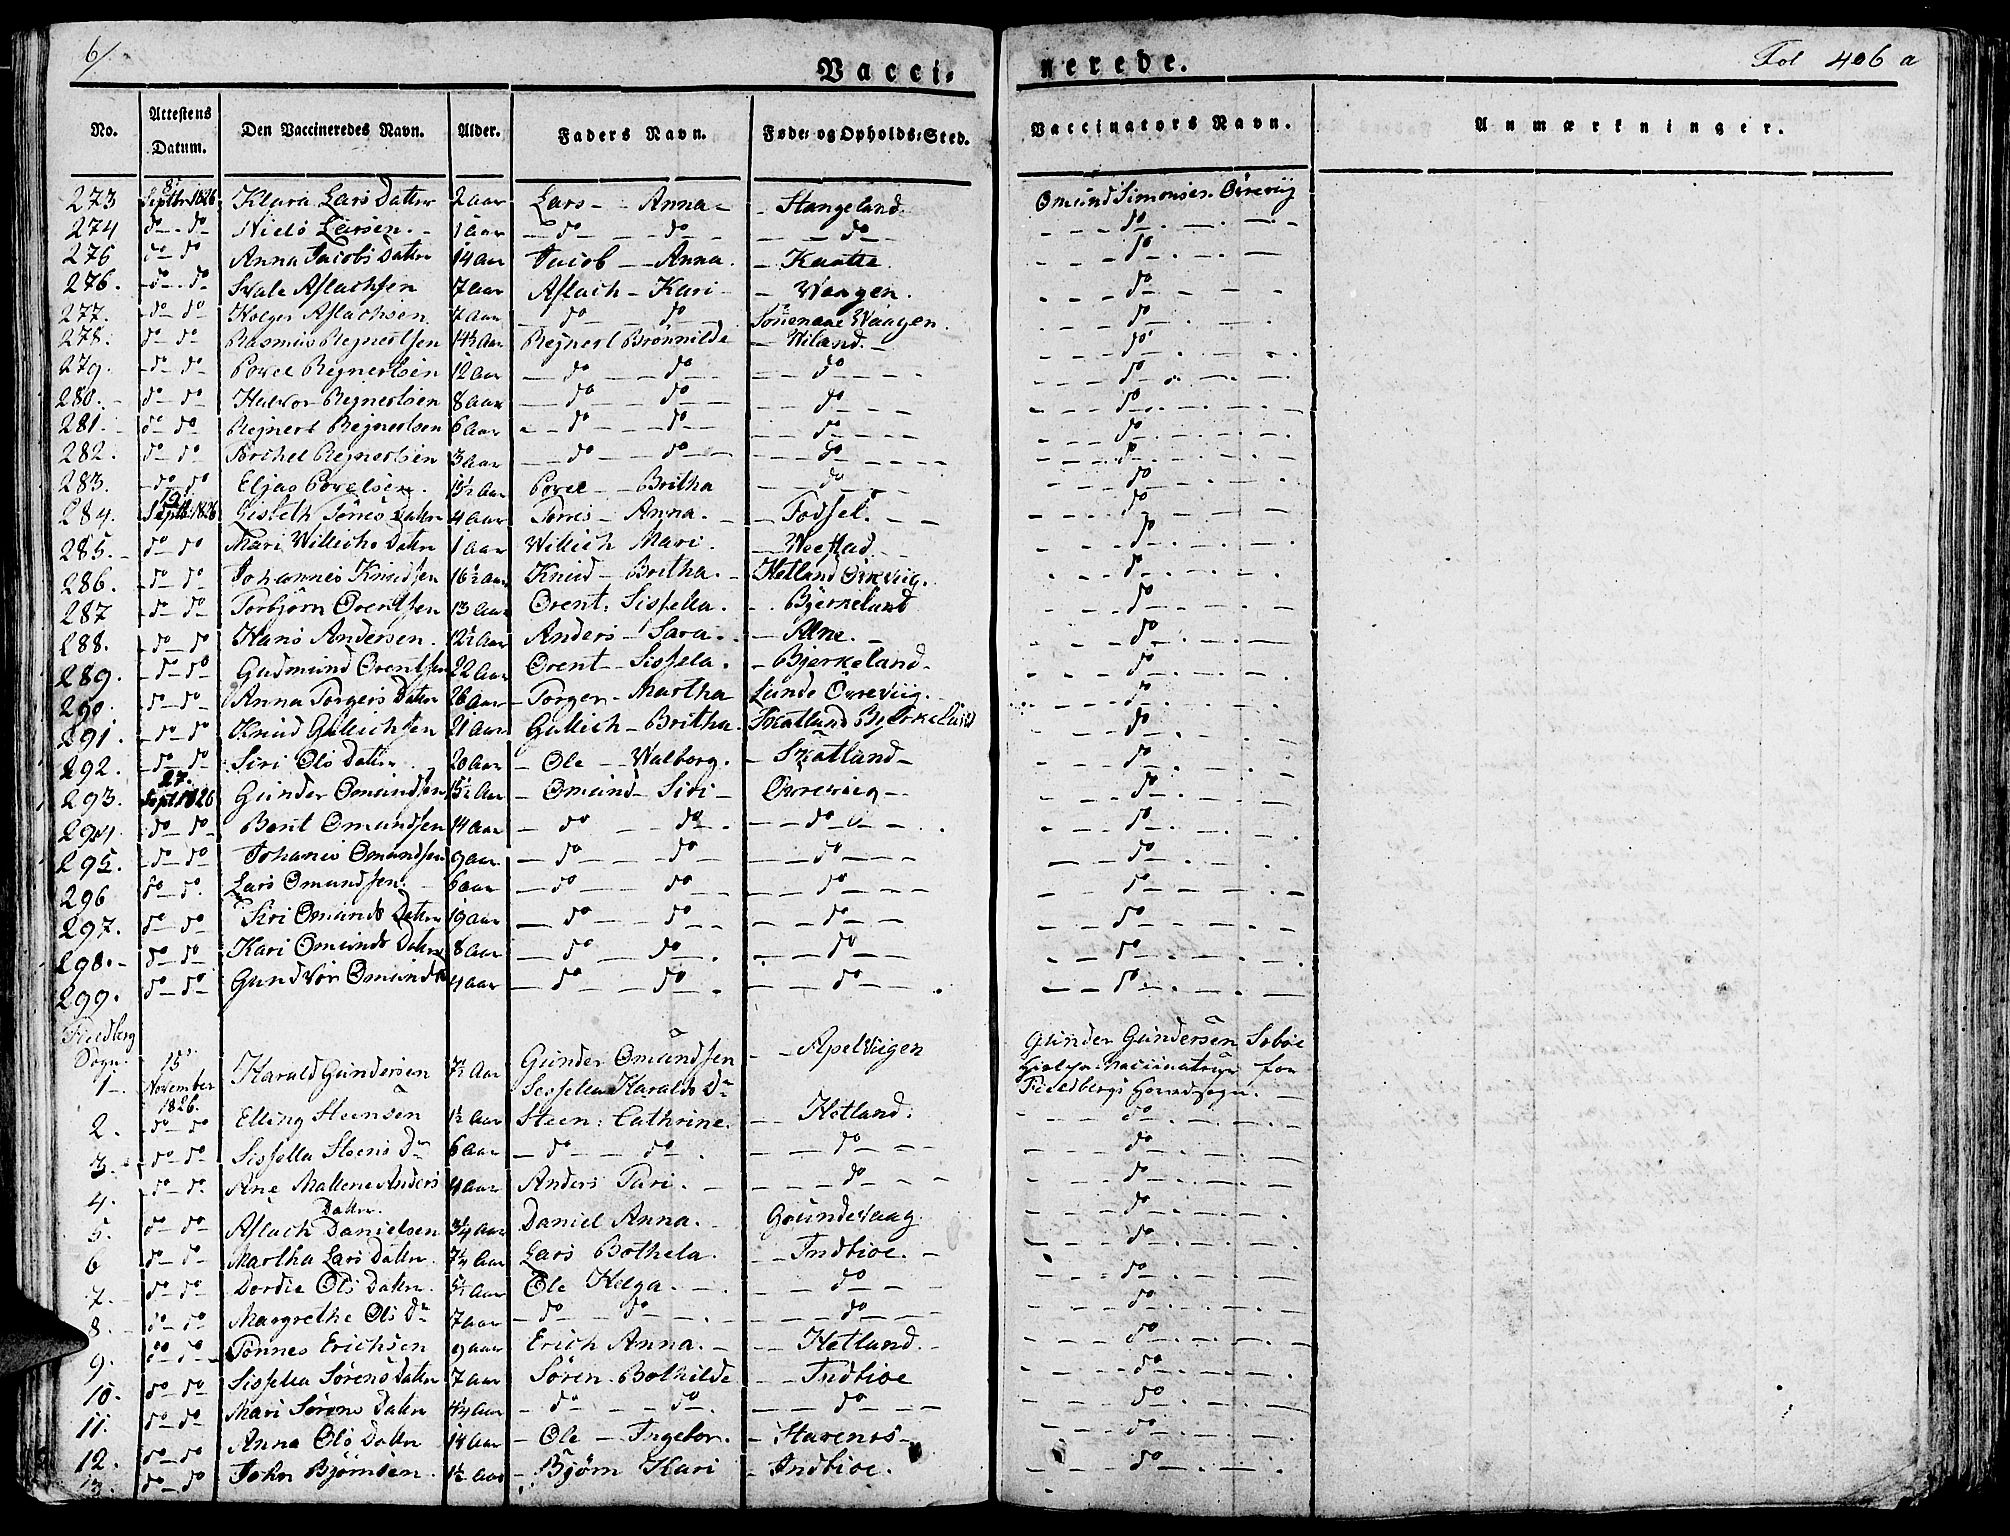 6/
Vacci-nerede.
Fol 406 a
No. Attestens Datum. Den Vaccineredes Navn. Alder. Faders Navn. Føde- og Opholds-Sted. Vaccinators Navn. Anmærkninger.
273 8 Septbr 1826 Klara Lars Datter 2 aar Lars - - Anna - - Stangeland. Omund Simonsen Øvrevig
274 do - do Niels Larsen. - 1 aar - do - - do - - do - - do
276 do - do Anna Jacobs Datter 14 aar Jacob - - Anna. - do
276. do - do Svale Aslachsen 7 aar Aslach - Kari - - Waagen. do
277. do - do Holger Aslachsen 7 aar do - do Waagen. do
278. do - do Rasmus Regnertsen Regnert Bronnilde - Wiland. - do
279. do - do Povel Regnertsen 12 aar do - do do do
280. do - do Halvor Regnertsen 8 aar do - do do do
281. do - do Regnert Regnertsen 6 aar do - do do do
282. do - do Torchel Regnertsen 3 aar do - do do do
283. do - do Elias Povelsen. Povel - - Britha do do
284. 19 Septbr 1826 Lisbeth Datter 4 aar Anna. - do
285. do - do Mari Willichs Datter 1 aar Willich Mari. do
286. do - do Johannes Knudsen 16½ aar Knud - Britha. - Hetland Øvrevig. do
287 do - do Torbjørn Orentsen 13 aar Orent. Sissella. - Bjerkeland do
288. do - do Hans Andersen. 12½ aar Anders - Sara. - Alne. - do
289. do - do Gudmund Orentsen 22 aar Orent - Sissela. - Bjerkeland - do
290. do - do Anna Torgers Datter 26 aar Torger - Martha Lunde Øvrevig. do
291. do - do Knud Gullichsen 21 aar Gullich - Britha. Skatland Bjerkeland do
292. do - do Siri Ols Datter 20 aar - Ole - Walborg. - Skatland - do
293. 27. Sept 1826 Gunder Omundsen 15½ aar - Omund - Siri - Øvrevig - do
294. do - do Bent Omundsen 14 aar - do - do - do do
295. do - do Johanes Omundsen 9 aar - do - do - do do
296 do - do. Lars Omundsen. 6 aar - do - do - do do
297. do - do Siri Omunds Datter 19 aar - do - do - do do
298. - do - do Kari Omunds Datter 8 aar - do - do - do do
299. do - do Gundvor Omunds 4 aar - do - do - do do
Fieldberg
Sogn.
1 - 15 November 1826. Harald Gundersen 7½ aar Gunder Omundsen Sissella Haralds Dr - Apelviigen Gunder Gundersen Soboe Hielpe Vaccinateur for Fieldbergs Hovedsogn. -
2. do - do Elling Steensen 1½ aar Steen. Cathrine. - Hetland. do
3. do - do Sissella Steens Dr 6 aar - do - do - do do
4. do - do. Ane Mallene Anders Datter. 4 aar Anders Turi. - do do
5. do - do Aslach Danielsen Daniel Anna. do
6 do - do Martha Lars Datter. Lars Bothela. - Indbioe. - do
7. do - do Dordie Ols Datter. Ole Helga. - do do
8. do - do Margrethe Ols Dr 7 aar do do do do
9. do - do Tønnes Erichsen 9 aar Erich Anna. - Hetland. - do
10. do - do Sissella Sørens Datter 7 aar Søren. Bothilde - Indbioe do
11. do - do Mari Sørens Datter - do do. - do do
12. do - do Anna Ols Datter 14 aar - Ole - Ingebor. - do
13. do - do John Bjørnsen. 1½ aar - Bjørn Kari - Indbioe. do